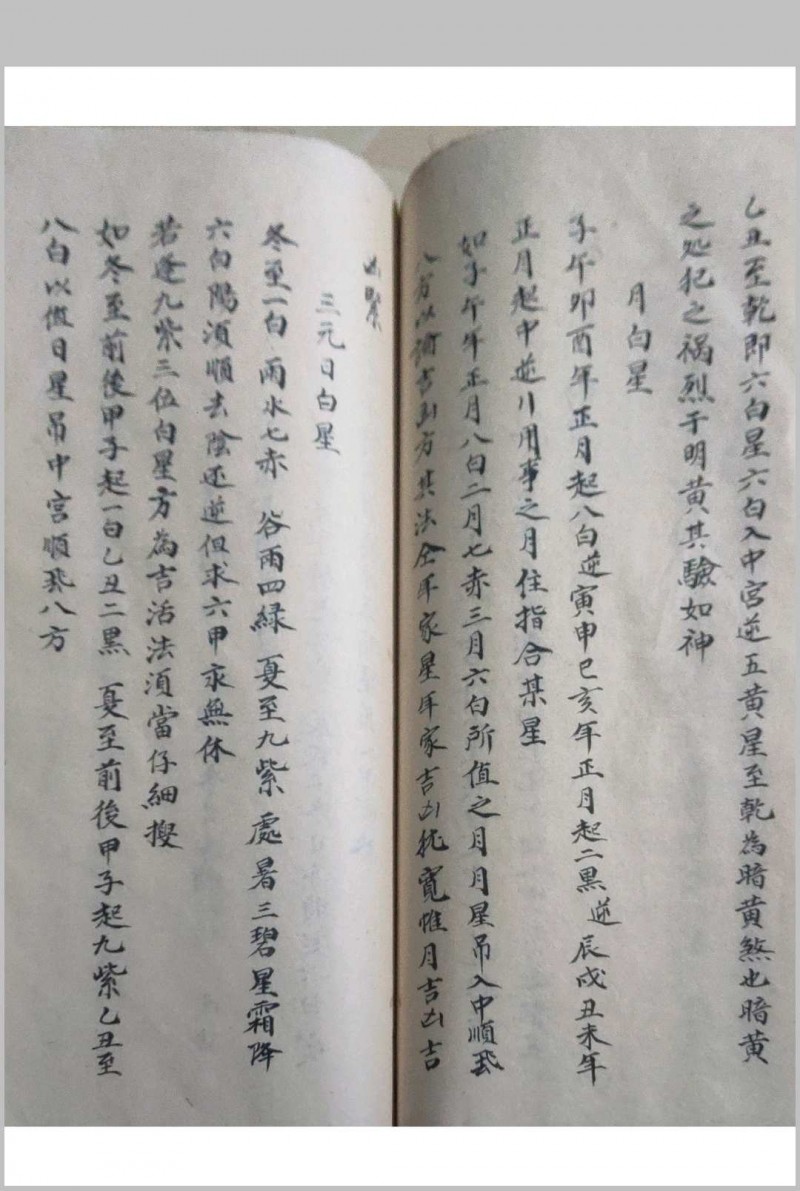 乙丑至乾即六白星六白入中宮逆五黃星至乾為暗黃煞也暗黃
之処犯之祸烈于明黄其驗如神
月白星
子午卯酉年正月起八白逆寅申巳亥年正月起二黑逆辰戌丑未年
正月起中逆川用事之月住指合某星
如子午年正月八白二月七赤三月六白所值之月月星吊入中順飛
八方以 吉凶方其法仝年家星年家吉凶 寬惟月吉凶吉
凶緊
三元日白星
冬至一白 雨水七赤 谷雨四緑 夏至九紫 處暑三碧星霜降
六白陽須順去陰还逆但求六甲永無休
若逢九紫三位白星方為吉活法須當仔細搜
如冬至前後甲子起一白乙丑二黑 夏至前後甲子起九紫乙丑至
八白以假日星吊中宮順飛八方